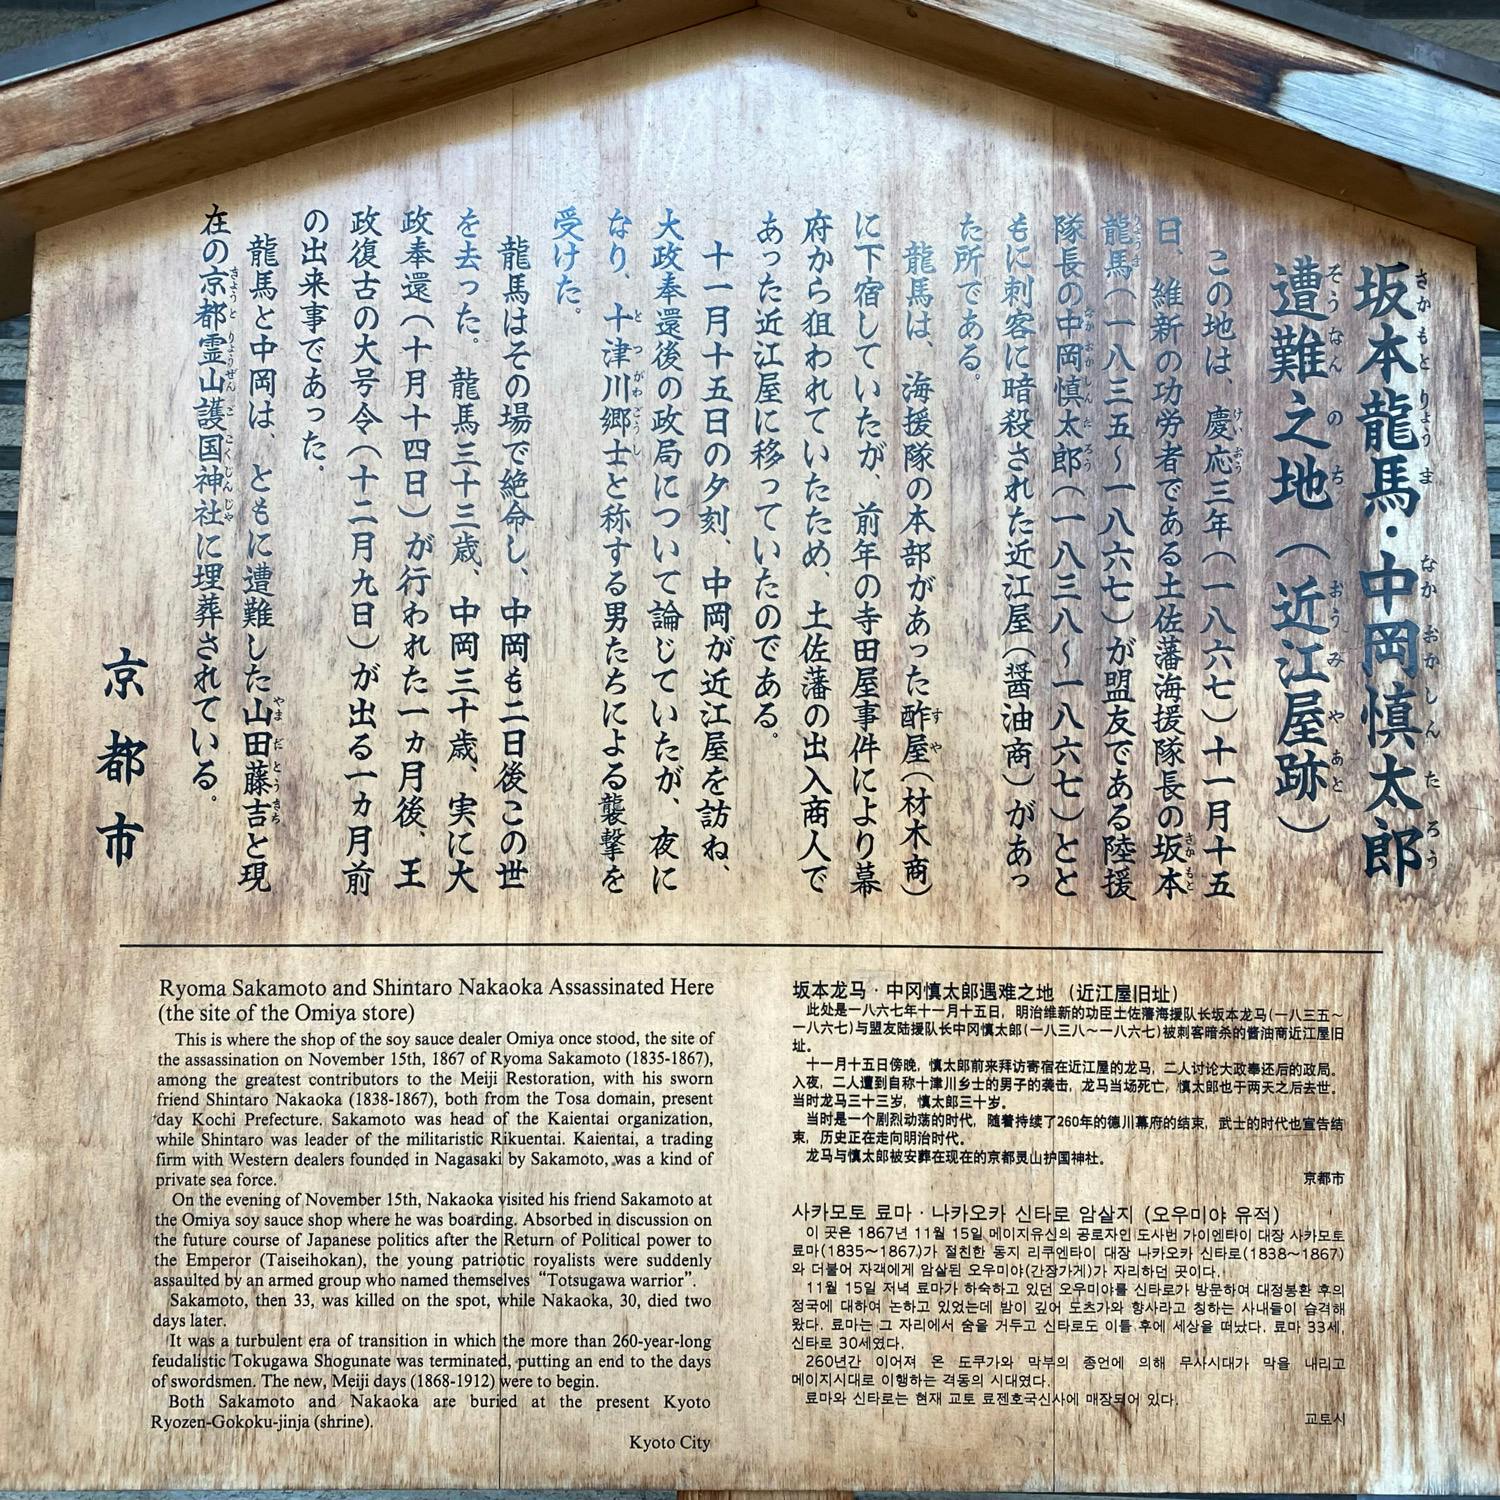 坂本龍馬・中岡慎太郎
遭難之地(近江屋跡)
この地は、慶応三年(一八六七)十一月十五
日、維新の功労者である土佐藩海援隊長の坂本
龍馬(一八三五～一八六七)が盟友である陸援
隊長の中岡慎太郎(一八三八～一八六七)とと
もに刺客に暗殺された近江屋(醤油商)があっ
た所である。
龍馬は、海援隊の本部があった酢屋(材木商)
に下宿していたが、前年の寺田屋事件により幕
府から狙われていたため、土佐藩の出入商人で
あった近江屋に移っていたのである。
十一月十五日の夕刻、中岡が近江屋を訪ね、
大政奉還後の政局について論じていたが、夜に
なり、十津川郷士と称する男たちによる襲撃を
受けた。
龍馬はその場で絶命し、中岡も二日後この世
を去った。龍馬三十三歳、中岡三十歳、実に大
政奉還(十月十四日)が行われた一カ月後、王
政復古の大号令(十二月九日)が出る一カ月前
の出来事であった。
龍馬と中岡は、ともに遭難した山田藤吉と現
在の京都霊山護国神社に埋葬されている。
京都市
Ryoma Sakamoto and Shintaro Nakaoka Assassinated Here
(the site of the Omiya store)
This is where the shop of the soy sauce dealer Omiya once stood, the site of
the assassination on November 15th, 1867 of Ryoma Sakamoto (1835-1867),
among the greatest contributors to the Meiji Restoration, with his sworn
friend Shintaro Nakaoka (1838-1867), both from the Tosa domain, present
day Kochi Prefecture. Sakamoto was head of the Kaientai organization,
while Shintaro was leader of the militaristic Rikuentai. Kaientai, a trading
firm with Western dealers founded in Nagasaki by Sakamoto, was a kind of
private sea force.
On the evening of November 15th, Nakaoka visited his friend Sakamoto at
the Omiya soy sauce shop where he was boarding. Absorbed in discussion on
the future course of Japanese politics after the Return of Political power to
the Emperor (Taiseihokan), the young patriotic royalists were suddenly
assaulted by an armed group who named themselves “Totsugawa warrior”.
Sakamoto, then 33, was killed on the spot, while Nakaoka, 30, died two
days later.
It was a turbulent era of transition in which the more than 260-year-long
feudalistic Tokugawa Shogunate was terminated, putting an end to the days
of swordsmen. The new, Meiji days (1868-1912) were to begin.
Both Sakamoto and Nakaoka are buried at the present Kyoto
Ryozen-Gokoku-jinja (shrine).
Kyoto City
坂本龙马·中冈慎太郎遇难之地 (近江屋旧址)
此处是一八六七年十一月十五日，明治维新的功臣土佐藩海援队长坂本龙马(一八三五～
一八六七)与盟友陆援队长中冈慎太郎(一八三八～一八六七)被刺客暗杀的酱油商近江屋旧
址。
十一月十五日傍晚，慎太郎前来拜访寄宿在近江屋的龙马，二人讨论大政奉还后的政局。
入夜，二人遭到自称十津川乡士的男子的袭击，龙马当场死亡，慎太郎也于两天之后去世。
当时龙马三十三岁，慎太郎三十岁。
当时是一个剧烈动荡的时代，随着持续了260年的德川幕府的结束，武士的时代也宣告结
束，历史正在走向明治时代。
龙马与慎太郎被安葬在现在的京都灵山护国神社。
京都市
사카모토 료마 · 나카오카 신타로 암살지 (오우미야 유적)
이 곳은 1867년 11월 15일 메이지유신의 공로자인 도사번 가이엔타이 대장 사카모토
료마(1835～1867)가 절친한 동지 리쿠엔타이 대장 나카오카 신타로(1838～1867)
와 더불어 자객에게 암살된 오우미야(간장가게)가 자리하던 곳이다.
11월 15일 저녁 료마가 하숙하고 있던 오우미야를 신타로가 방문하여 대정봉환 후의
정국에 대하여 논하고 있었는데 밤이 깊어 도츠가와 향사라고 칭하는 사내들이 습격해
왔다. 료마는 그 자리에서 숨을 거두고 신타로도 이틀 후에 세상을 떠났다. 료마 33세,
신타로 30세였다.
260년간 이어져 온 도쿠가와 막부의 종언에 의해 무사시대가 막을 내리고
메이지시대로 이행하는 격동의 시대였다.
료마와 신타로는 현재 교토 료젠호국신사에 매장되어 있다.
교토시